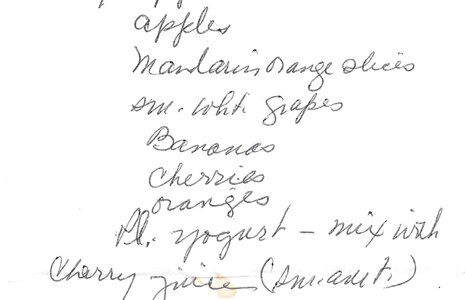 apples
Mandarin orange slices
sm. wht. grapes
Bananas
Cherries
oranges
Pl. yogurt - mix with
Cherry juice (sm. amt.)